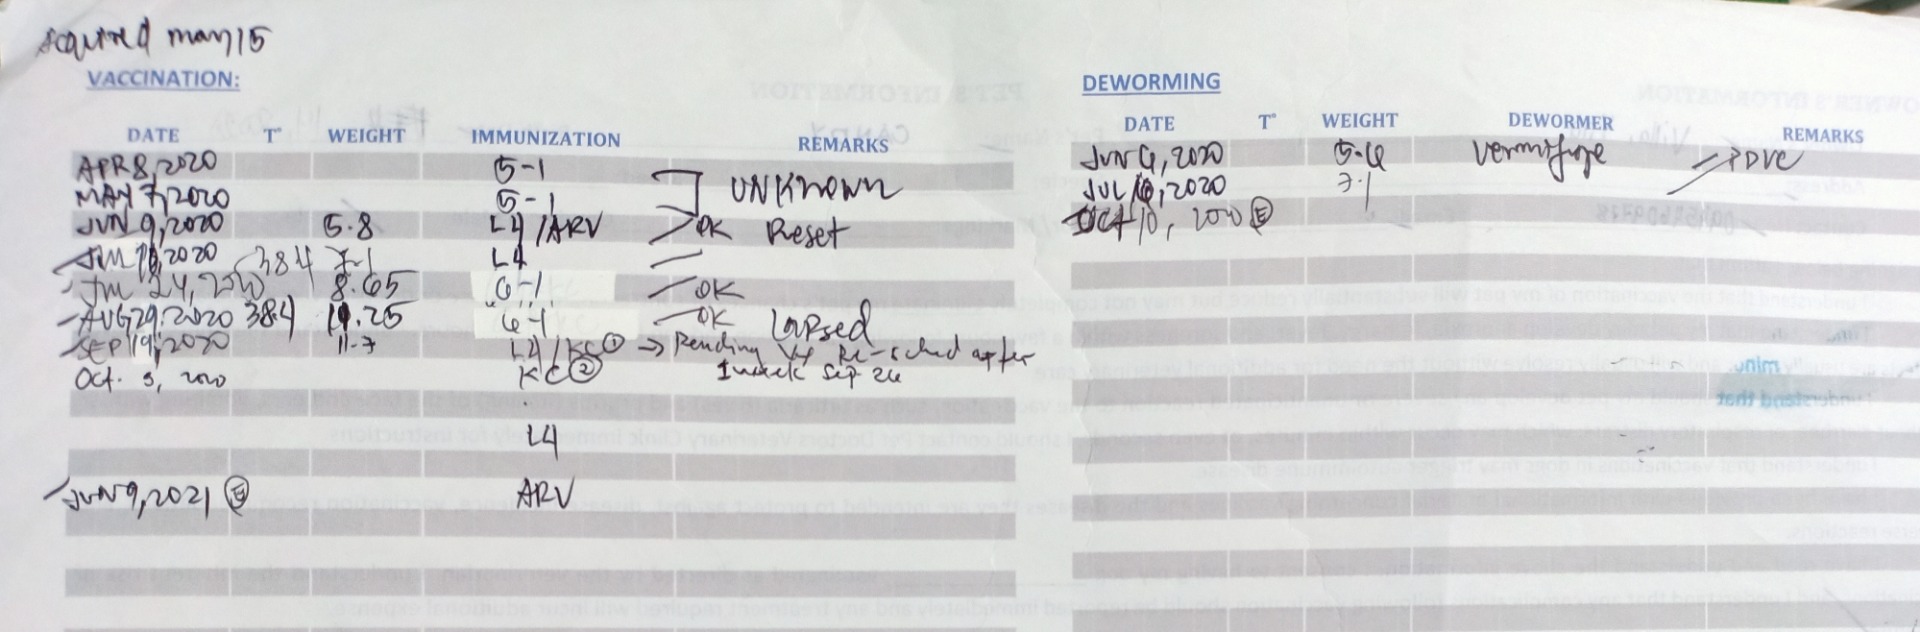 Acquired may 15
VACCINATION:
DATE T° WEIGHT IMMUNIZATION REMARKS
APR 8, 2020 5-1
MAY 7, 2020 5-1 UNKNOWN
JUN 9, 2020 5.8 L4/ARV OK Reset
2020 38.4 7.1 L4
24, 2020 8.65 6-1 OK
AUG 29, 2020 38.4 25 6-1 OK Lapsed
SEP 19, 2020 11.7 L4/KC① → Pending Re-sched after
Oct. 3, 2020 KC② 1 week Sep 26
L4
JUN 9, 2021 Ⓔ ARV
DEWORMING
DATE T° WEIGHT DEWORMER REMARKS
JUN 6, 2020 5.6 Vermifuge PDVC
JUL 2020 7.1
OCT 10, 2020 Ⓔ